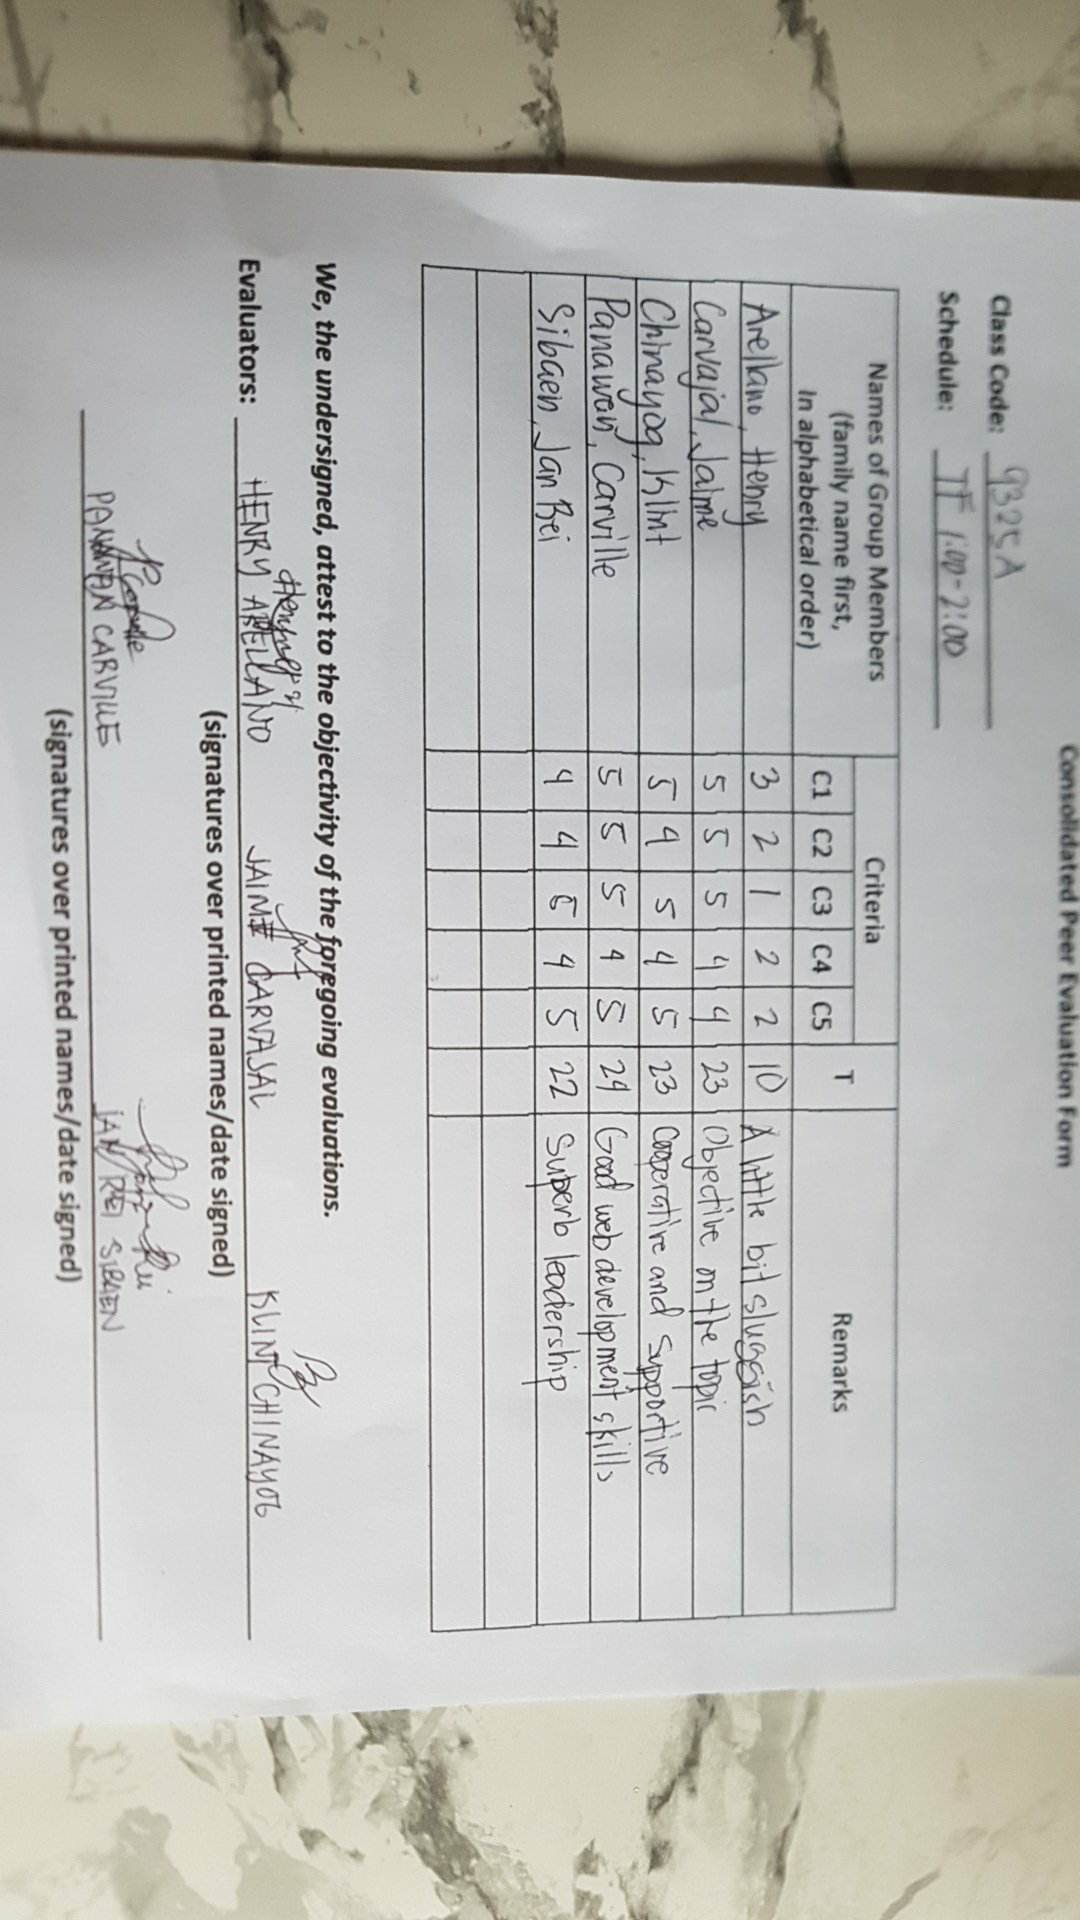 Consolidated Peer Evaluation Form
Class Code: 9325A
Schedule: TF 1:00-2:00
Names of Group Members
(family name first,
In alphabetical order)
Criteria
C1 C2 C3 C4 C5
T
Remarks
Arellano, Henry 3 2 1 2 2 10 A little bit sluggish
Carvajal, Jaime 5 5 5 4 4 23 Objective on the topic
Chinayog, Klint 5 4 5 4 5 23 Cooperative and Supportive
Panawan, Carville 5 5 5 4 5 24 Good web development skills
Sibaen, Jan Rei 4 4 5 4 5 22 Superb leadership
We, the undersigned, attest to the objectivity of the foregoing evaluations.
Evaluators: HENRY ARELLANO JAIME CARVAJAL KLINT CHINAYOG
(signatures over printed names/date signed)
PANAWAN CARVILLE JAN REI SIBAEN
(signatures over printed names/date signed)